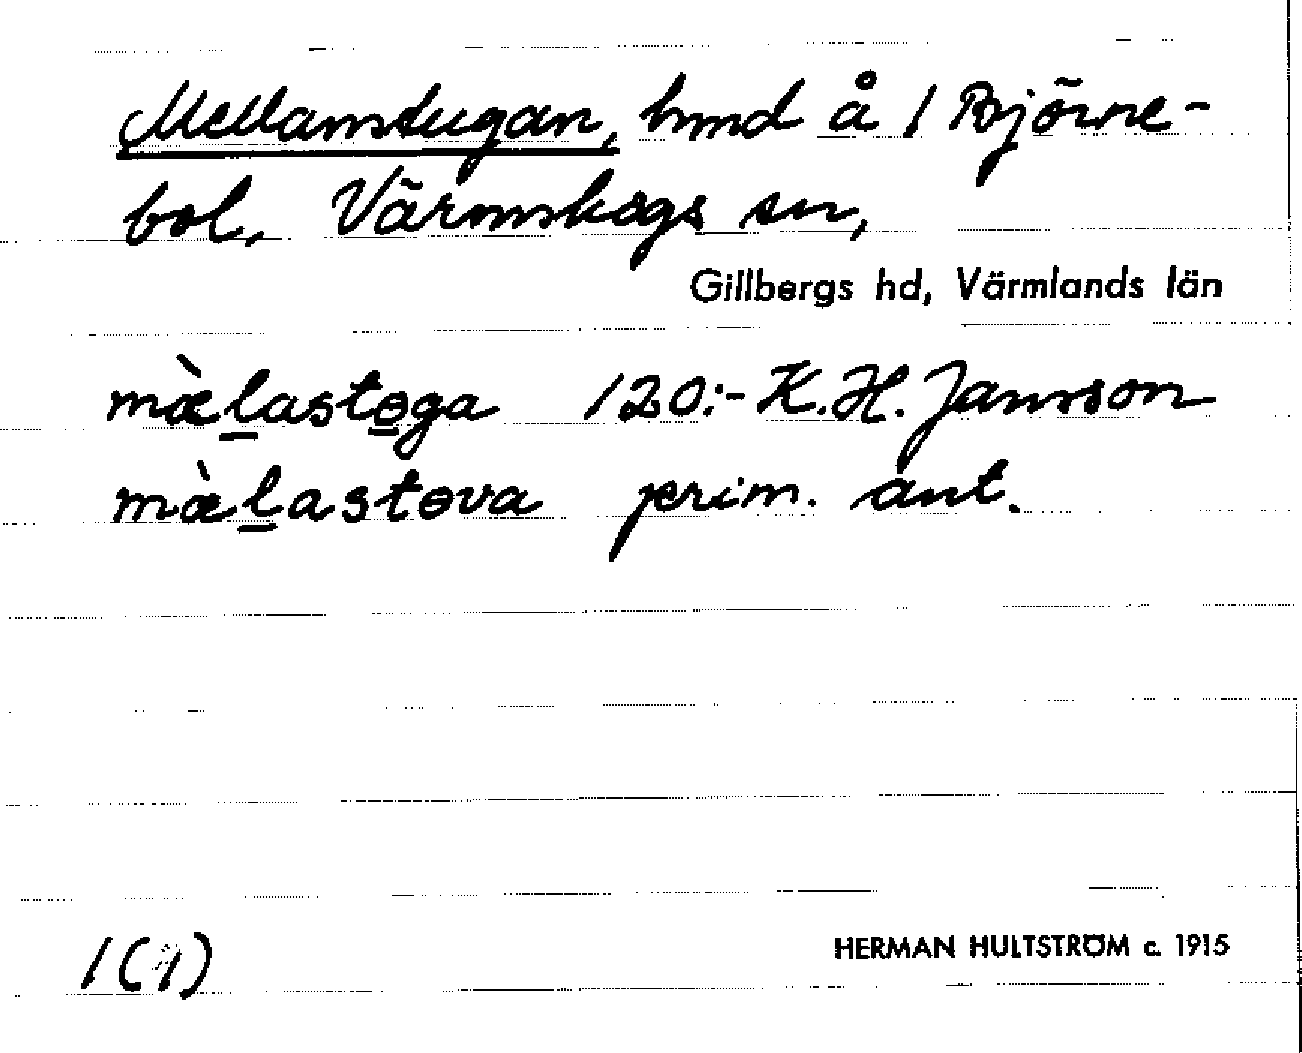 Mellanstugan, hmd å 1 Björne-
bol, Värmskogs sn,
Gillbergs hd, Värmlands län
mæ̀l̲astɵ̲ga 120:- K. H. Jansson
mæ̀l̲astɵva prim. ant.
1 (1)
HERMAN HULTSTRÖM c. 1915